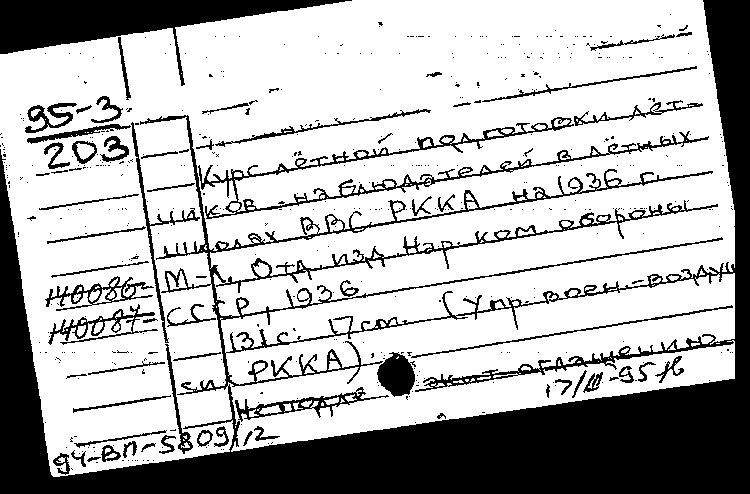 95-3
203
Курс лётной подготовки лёт-
чиков-наблюдателей в лётных
школах ВВС РККА на 1936 г.
140086-
М.-Л., Отд. изд. Нар. ком. обороны
140087-
СССР, 1936.
131 с. 17 см. (Упр. воен.-воздуш
сил РККА).
Не подле жит оглашению
17/III-95
94-ВП-5809/12